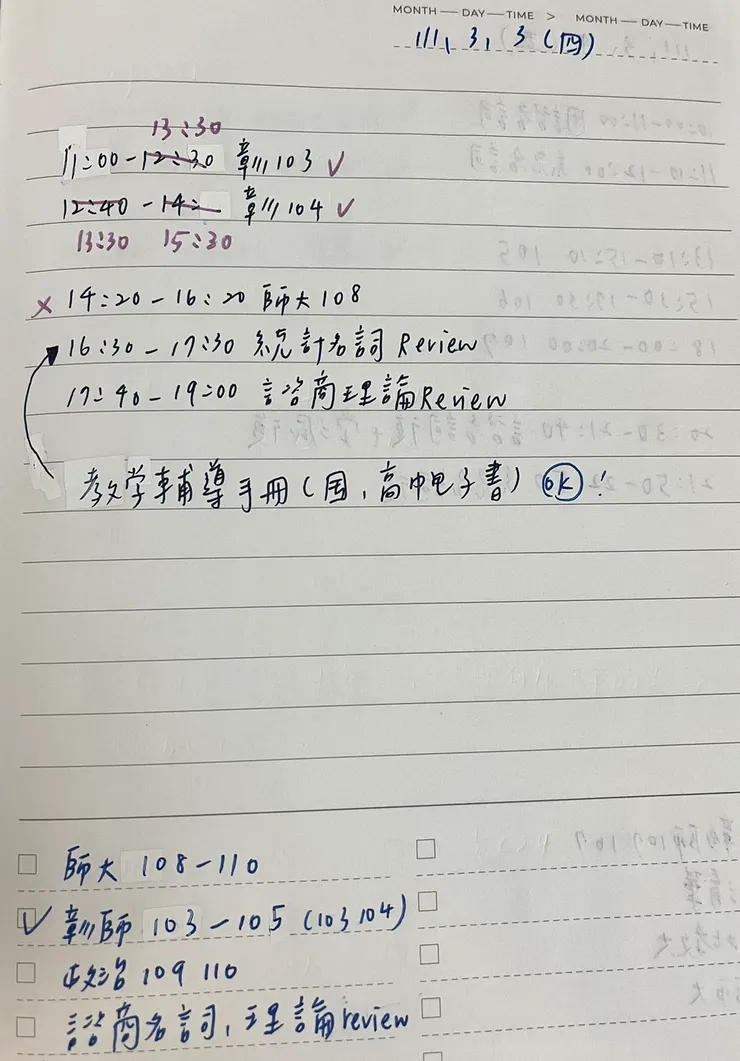 MONTH — DAY — TIME > MONTH — DAY — TIME
111、3、3(四)
13:30
11:00-12:30 彰103 ✓
12:40-14: 彰104 ✓
13:30 15:30
× 14:20-16:20 師大108
16:30-17:30 統計名詞 Review
17:40-19:00 諮商理論Review
教学輔導手冊(国,高中电子書) ok!
師大 108-110
✓ 彰師 103-105 (103 104)
政治 109 110
諮商名詞,理論review